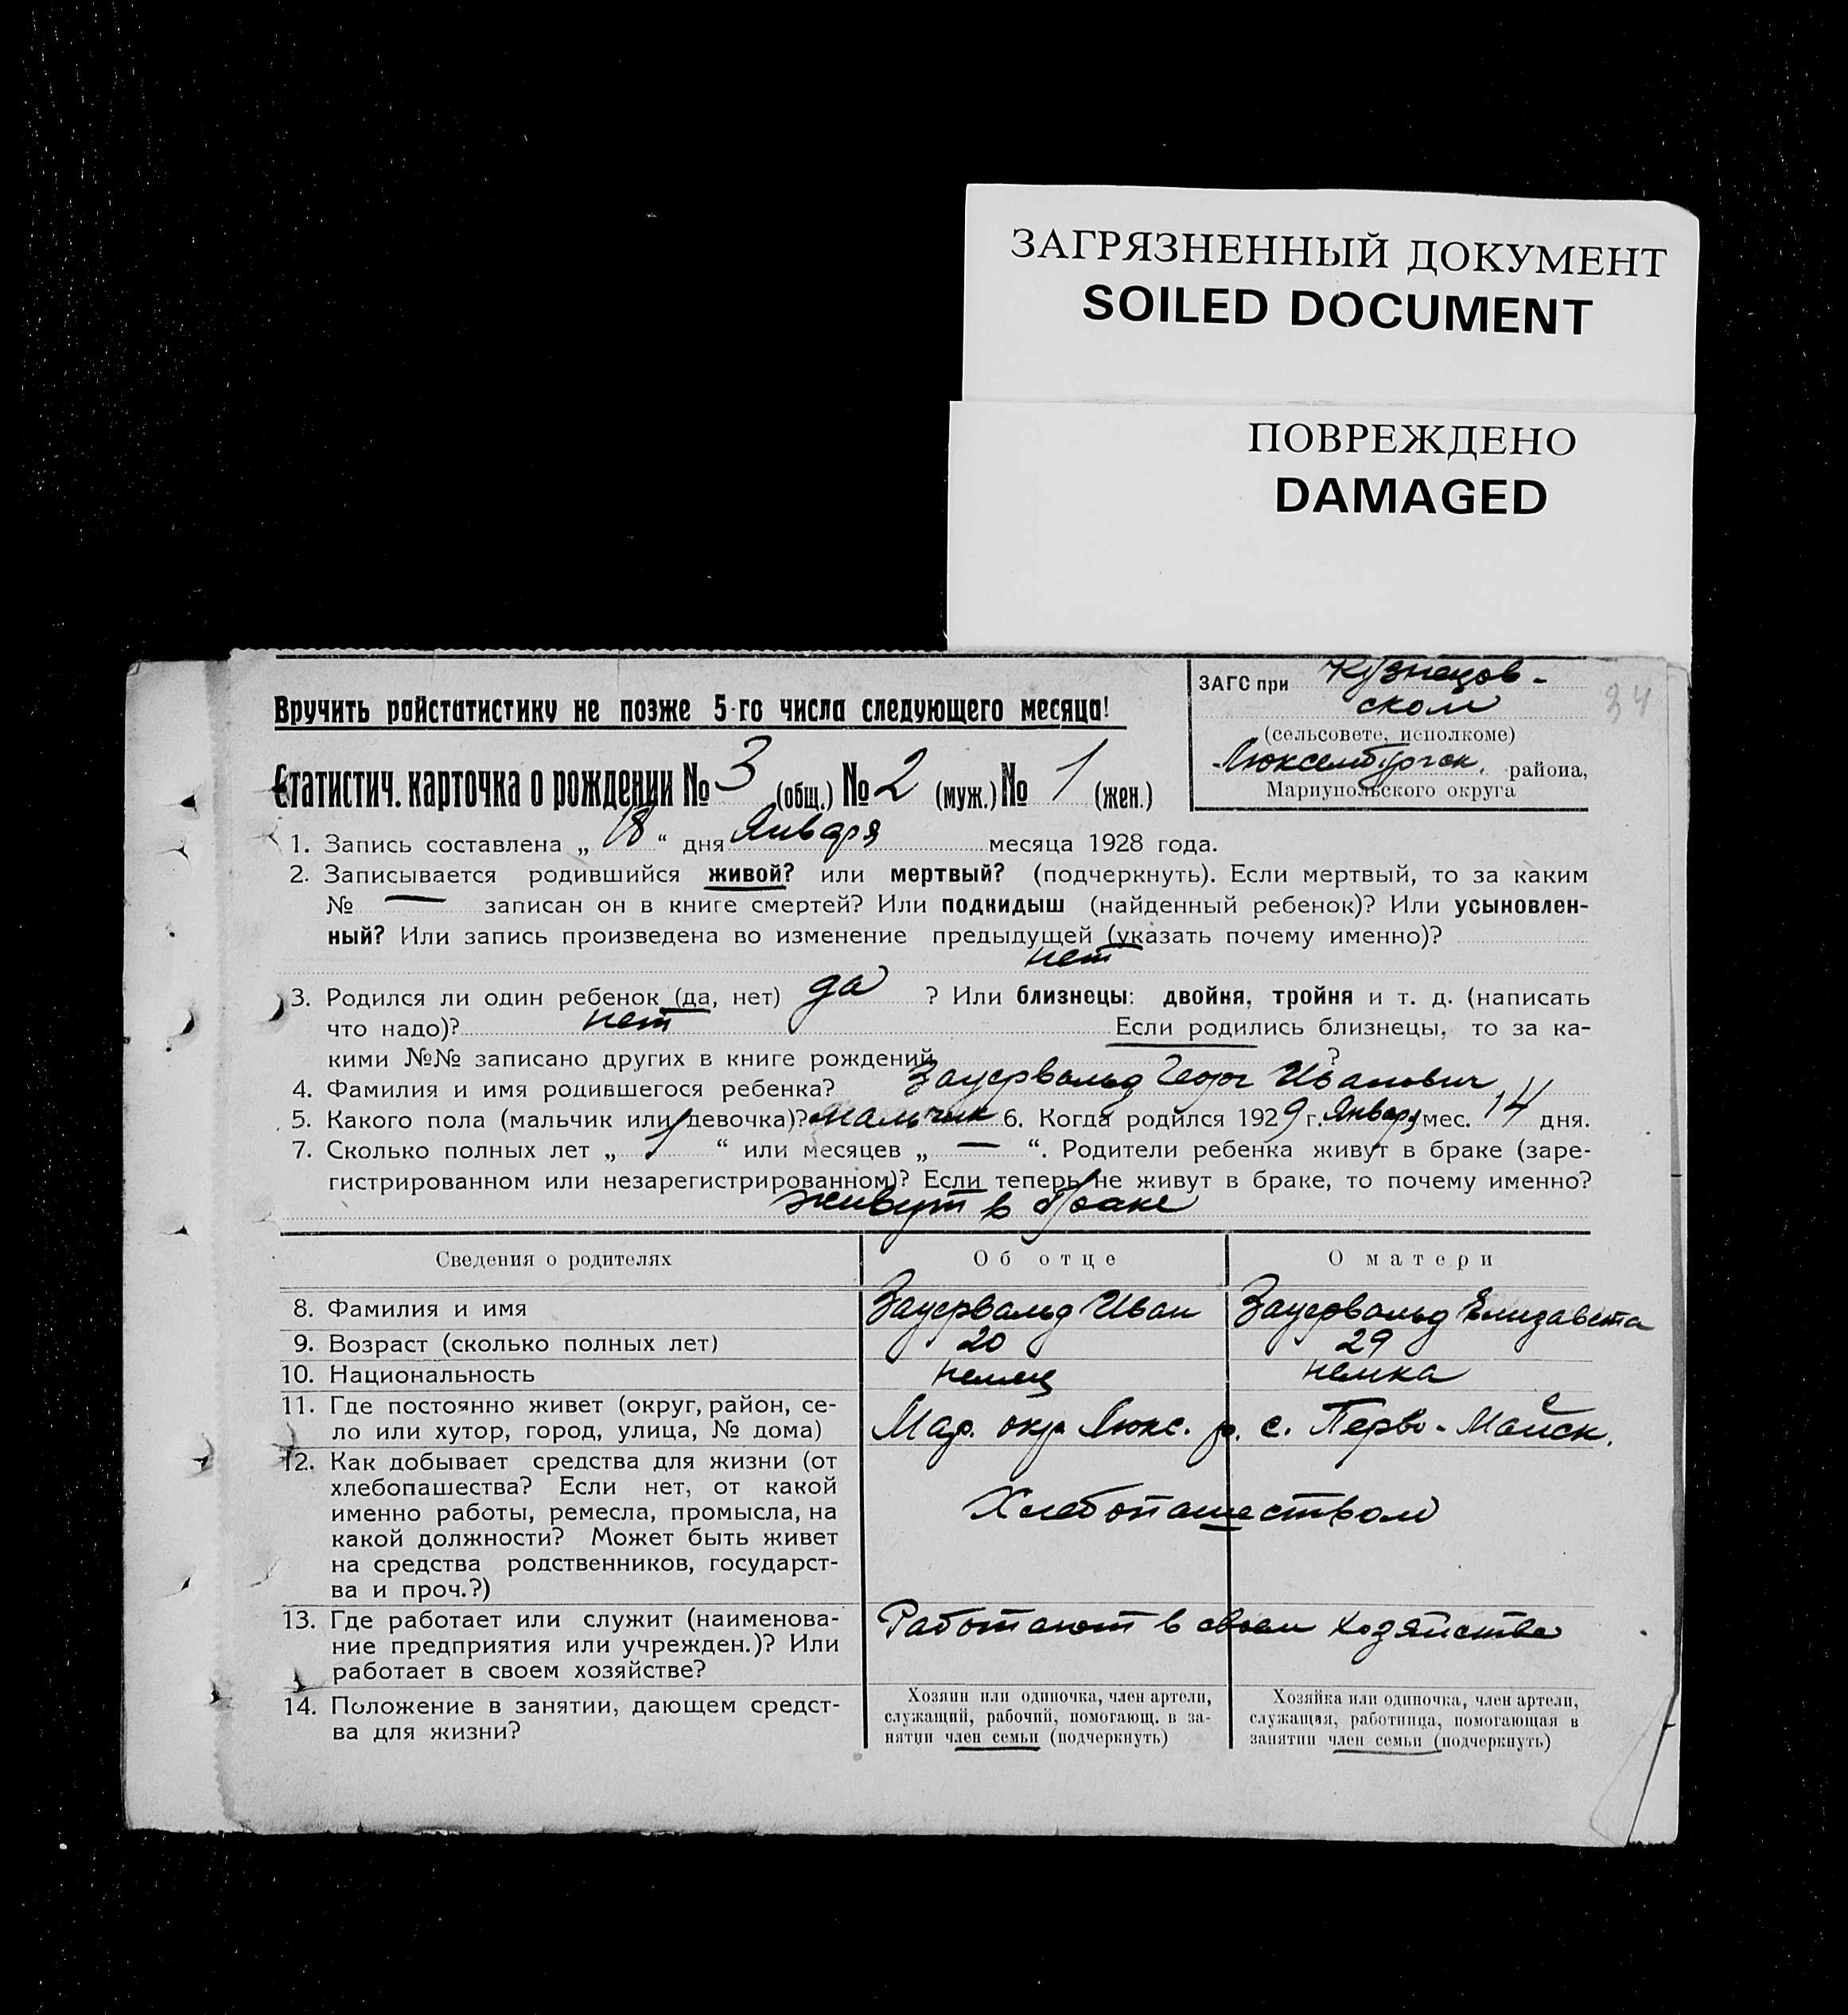 ЗАГРЯЗНЕННЫЙ ДОКУМЕНТ
SOILED DOCUMENT
ПОВРЕЖДЕНО
DAMAGED
Вручить райстатистику не позже 5-го числа следующего месяца!
ЗАГС при Кузнецов-
ском
34
(сельсовете, исполкоме)
Люксембургск. района,
Мариупольского округа
Статистич. карточка о рождении № 3 (общ.) № 2 (муж.) № 1 (жен.)
1. Запись составлена „ 18 “ дня Января месяца 1928 года.
2. Записывается родившийся живой? или мертвый? (подчеркнуть). Если мертвый, то за каким
№ — записан он в книге смертей? Или подкидыш (найденный ребенок)? Или усыновлен-
ный? Или запись произведена во изменение предыдущей (указать почему именно)?
нет
3. Родился ли один ребенок (да, нет) да ? Или близнецы: двойня, тройня и т. д. (написать
что надо)? нет Если родились близнецы, то за ка-
кими №№ записано других в книге рождений ?
4. Фамилия и имя родившегося ребенка? Зауервальд Георг Иванович
5. Какого пола (мальчик или девочка)? мальчик 6. Когда родился 1929 г. Январ мес. 14 дня.
7. Сколько полных лет „ 1 “ или месяцев „ — “. Родители ребенка живут в браке (заре-
гистрированном или незарегистрированном)? Если теперь не живут в браке, то почему именно?
живут в браке
Сведения о родителях Об отце О матери
8. Фамилия и имя Зауервальд Иван Зауервальд Елизавета
9. Возраст (сколько полных лет) 20 29
10. Национальность немец немка
11. Где постоянно живет (округ, район, се-
ло или хутор, город, улица, № дома) Мар. окр. Люкс. р. с. Перво-Майск.
12. Как добывает средства для жизни (от
хлебопашества? Если нет, от какой
именно работы, ремесла, промысла, на
какой должности? Может быть живет
на средства родственников, государст-
ва и проч.?)
Хлебопашеством
13. Где работает или служит (наименова-
ние предприятия или учрежден.)? Или
работает в своем хозяйстве?
Работают в своем хозяйстве
14. Положение в занятии, дающем средст-
ва для жизни?
Хозяин или одиночка, член артели,
служащий, рабочий, помогающ. в за-
нятии член семьи (подчеркнуть)
Хозяйка или одиночка, член артели,
служащая, работница, помогающая в
занятии член семьи (подчеркнуть)